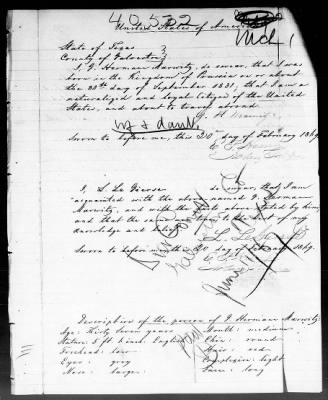 40532
United States of America
State of Texas
County of Galveston
I, J. Herman Marwitz, do swear, that I was
born in the Kingdom of Prussia on or about
the 28th day of September 1831, that I am a
naturalized and loyal citizen of the United
States, and about to travel abroad.
Sworn to before me, this 20 day of February 1869
I, L. Le Pierse do swear, that I am
acquainted with the above named J. Herman
Marwitz, and with the facts above stated by him,
and that the same are true to the best of my
knowledge and belief.
Sworn to before me this 20 day of February 1869.
Description of the person of J. Herman Marwitz
Age: Thirty seven years Mouth: medium
Stature: 5 ft. 6 inch. English Chin: round
Forehead: low Hair: red
Eyes: grey Complexion: light
Nose: large. Face: long